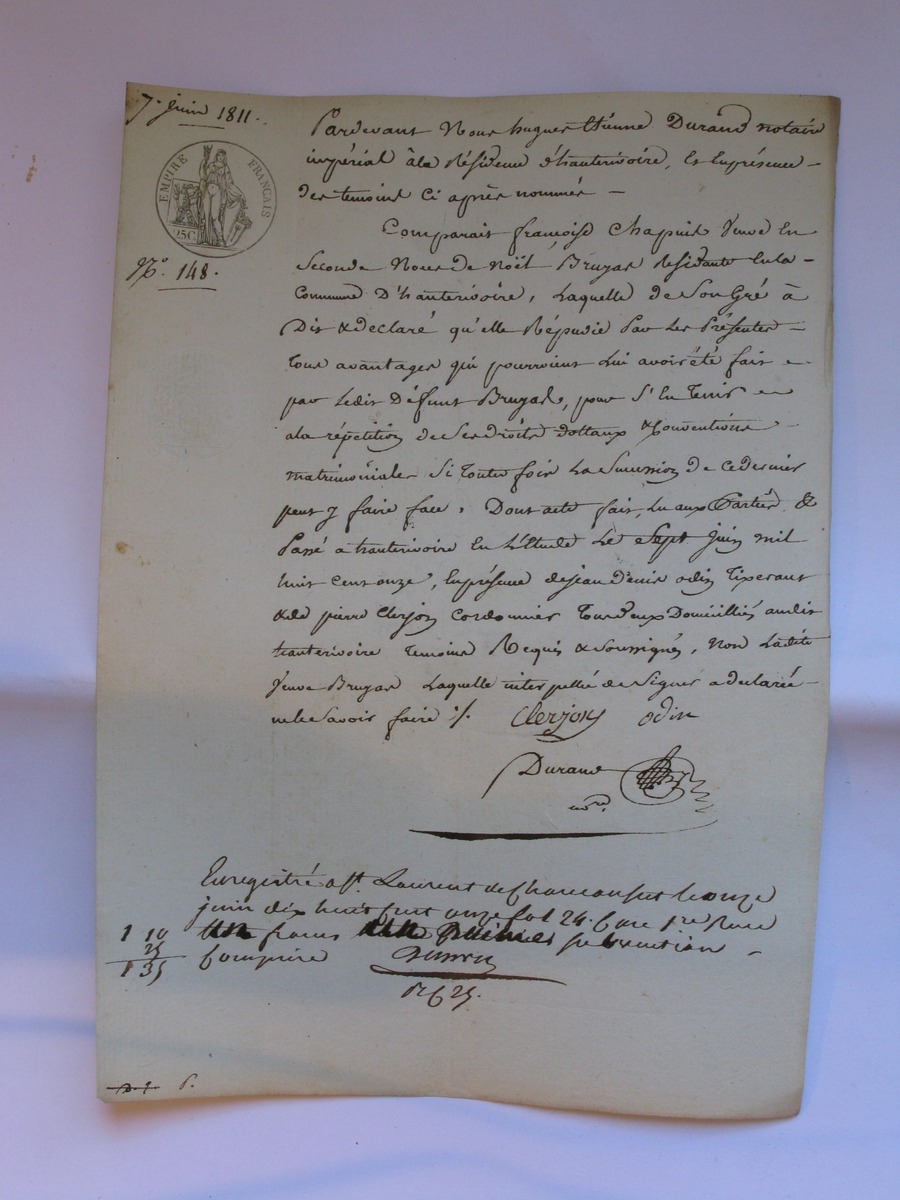 7. juin 1811.
EMPIRE FRANÇAIS
25C
N.º 148.
Pardevant Nous hugues Etienne Durand notaire
impérial à la Résidence d'hauterivoire, Et En présence
des temoins Ci après nommés
Comparait françoise Chapuis Veuve En
Seconde Noces de Noël Bruyas Residante En la
Commune D'hauterivoire, Laquelle de Son Gré à
Dit & declaré qu'elle Répudie Par Les Présentes
tous avantages qui pourroient Lui avoir été fait
par Ledit Défunt Bruyas, pour S'En Tenir
ala répétition de Ses droits dottaux & Conventions
matrimoniales Si toute fois La Succession de ce dernier
peut y faire face, Dont acte fait, Lu aux Parties &
Passé a hauterivoire En L'Etude Le Sept Juin mil
huit cent onze, En présence de jean denis odin Tixerant
& de pierre Clerjon Cordonnier Tous deux Domiciliés audit
hauterivoire temoins Requis & Soussignés, Non Ladite
Veuve Bruyas Laquelle interpellée de Signer a declarée
ne le Savoir faire ./.  Clerjon  odin
Durand
no.re
Enregistré a St. Laurent de Chamousset le onze
juin dix huit cent onze fol 24. Case 1re Reçu
1 10 un franc subvention
25
1 35 Comprise
R f 25.